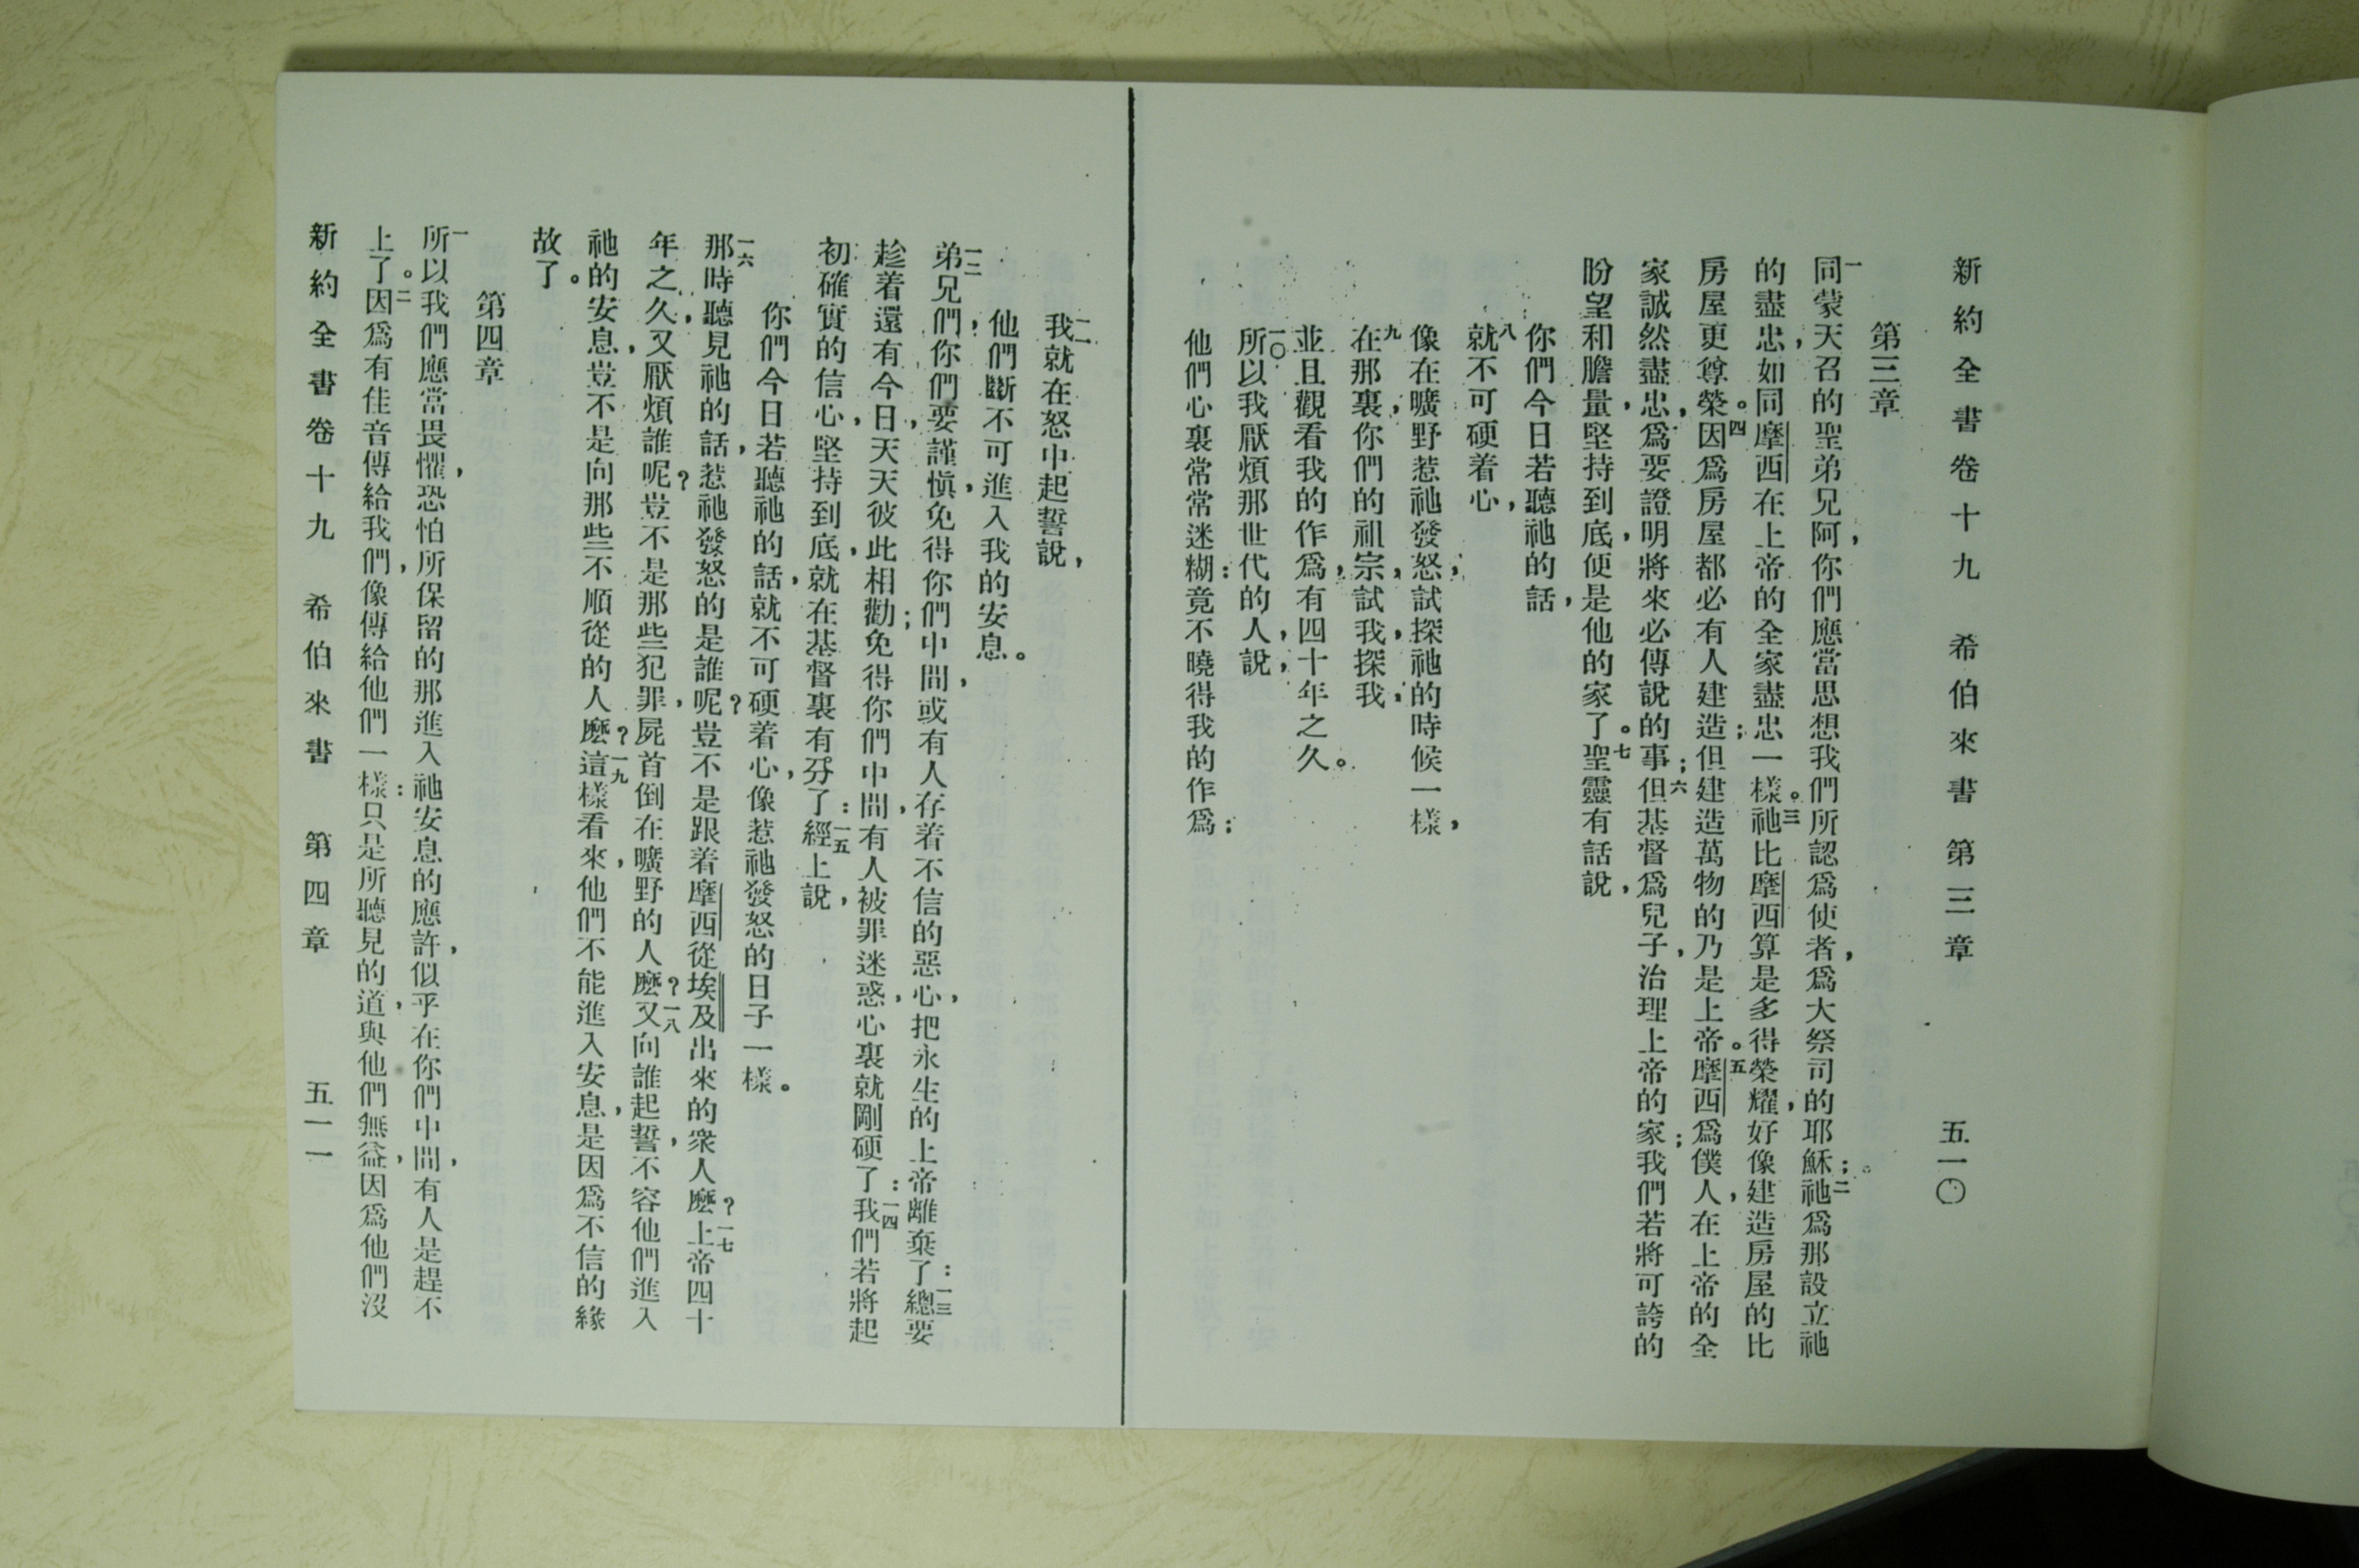 新約全書卷十九 希伯來書 第三章 五一〇
第三章
一同蒙天召的聖弟兄阿，你們應當思想我們所認爲使者，爲大祭司的耶穌；二祂爲那設立祂
的盡忠，如同摩西在上帝的全家盡忠一樣。三祂比摩西算是多得榮耀，好像建造房屋的比
房屋更尊榮。四因爲房屋都必有人建造；但建造萬物的乃是上帝。五摩西爲僕人，在上帝的全
家誠然盡忠，爲要證明將來必傳說的事；六但基督爲兒子，治理上帝的家；我們若將可誇的
盼望和膽量，堅持到底，便是他的家了。七聖靈有話說，
你們今日若聽祂的話，
八就不可硬着心，
像在曠野惹祂發怒，試探祂的時候一樣，
九在那裏，你們的祖宗，試我，探我，
並且觀看我的作爲，有四十年之久。
一〇所以我厭煩那世代的人，說，
他們心裏常常迷糊：竟不曉得我的作爲；
一一我就在怒中起誓說，
他們斷不可進入我的安息。
一二弟兄們，你們要謹愼，免得你們中間，或有人存着不信的惡心，把永生的上帝離棄了：一三總要
趁着還有今日，天天彼此相勸；免得你們中間，有人被罪迷惑，心裏就剛硬了：一四我們若將起
初確實的信心，堅持到底，就在基督裏有分了：一五經上說，
你們今日若聽祂的話，就不可硬着心，像惹祂發怒的日子一樣。
一六那時聽見祂的話，惹祂發怒的是誰呢？豈不是跟着摩西從埃及出來的衆人麽？一七上帝四十
年之久，又厭煩誰呢？豈不是那些犯罪，屍首倒在曠野的人麽？一八又向誰起誓，不容他們進入
祂的安息，豈不是向那些不順從的人麽？一九這樣看來，他們不能進入安息，是因爲不信的緣
故了。
第四章
一所以我們應當畏懼，恐怕所保留的那進入祂安息的應許，似乎在你們中間，有人是趕不
上了。二因爲有佳音傳給我們，像傳給他們一樣：只是所聽見的道，與他們無益，因爲他們沒
新約全書卷十九 希伯來書 第四章 五一一